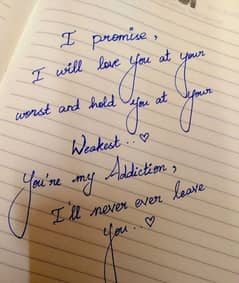 I promise,
I will love you at your
worst and hold you at your
Weakest..♡
You're my Addiction,
I'll never ever leave
you..♡